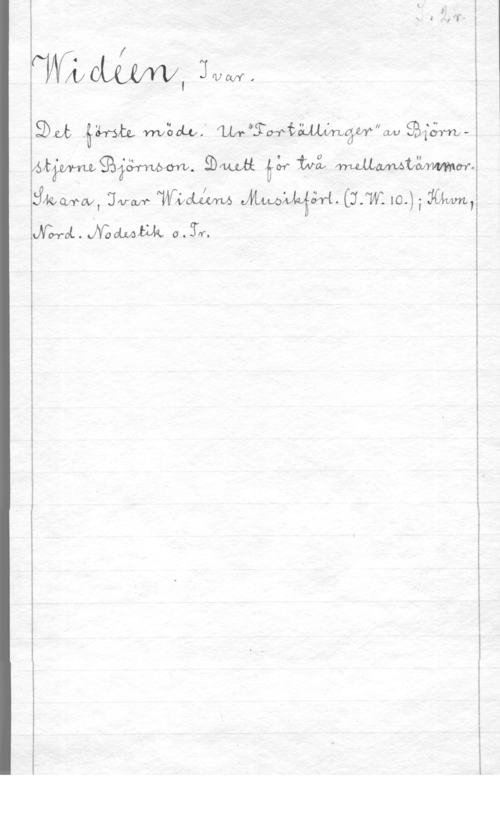 Widéen, Ivar.
Det första möde. Ur "Fortällinger" av Björn-
stjerne Björnson. Duett för två mellanstämmor.
Skara, Ivar Widéens Musikförl. (I.W. 10.); Khvn,
Nord. Nodestik o. Tr.